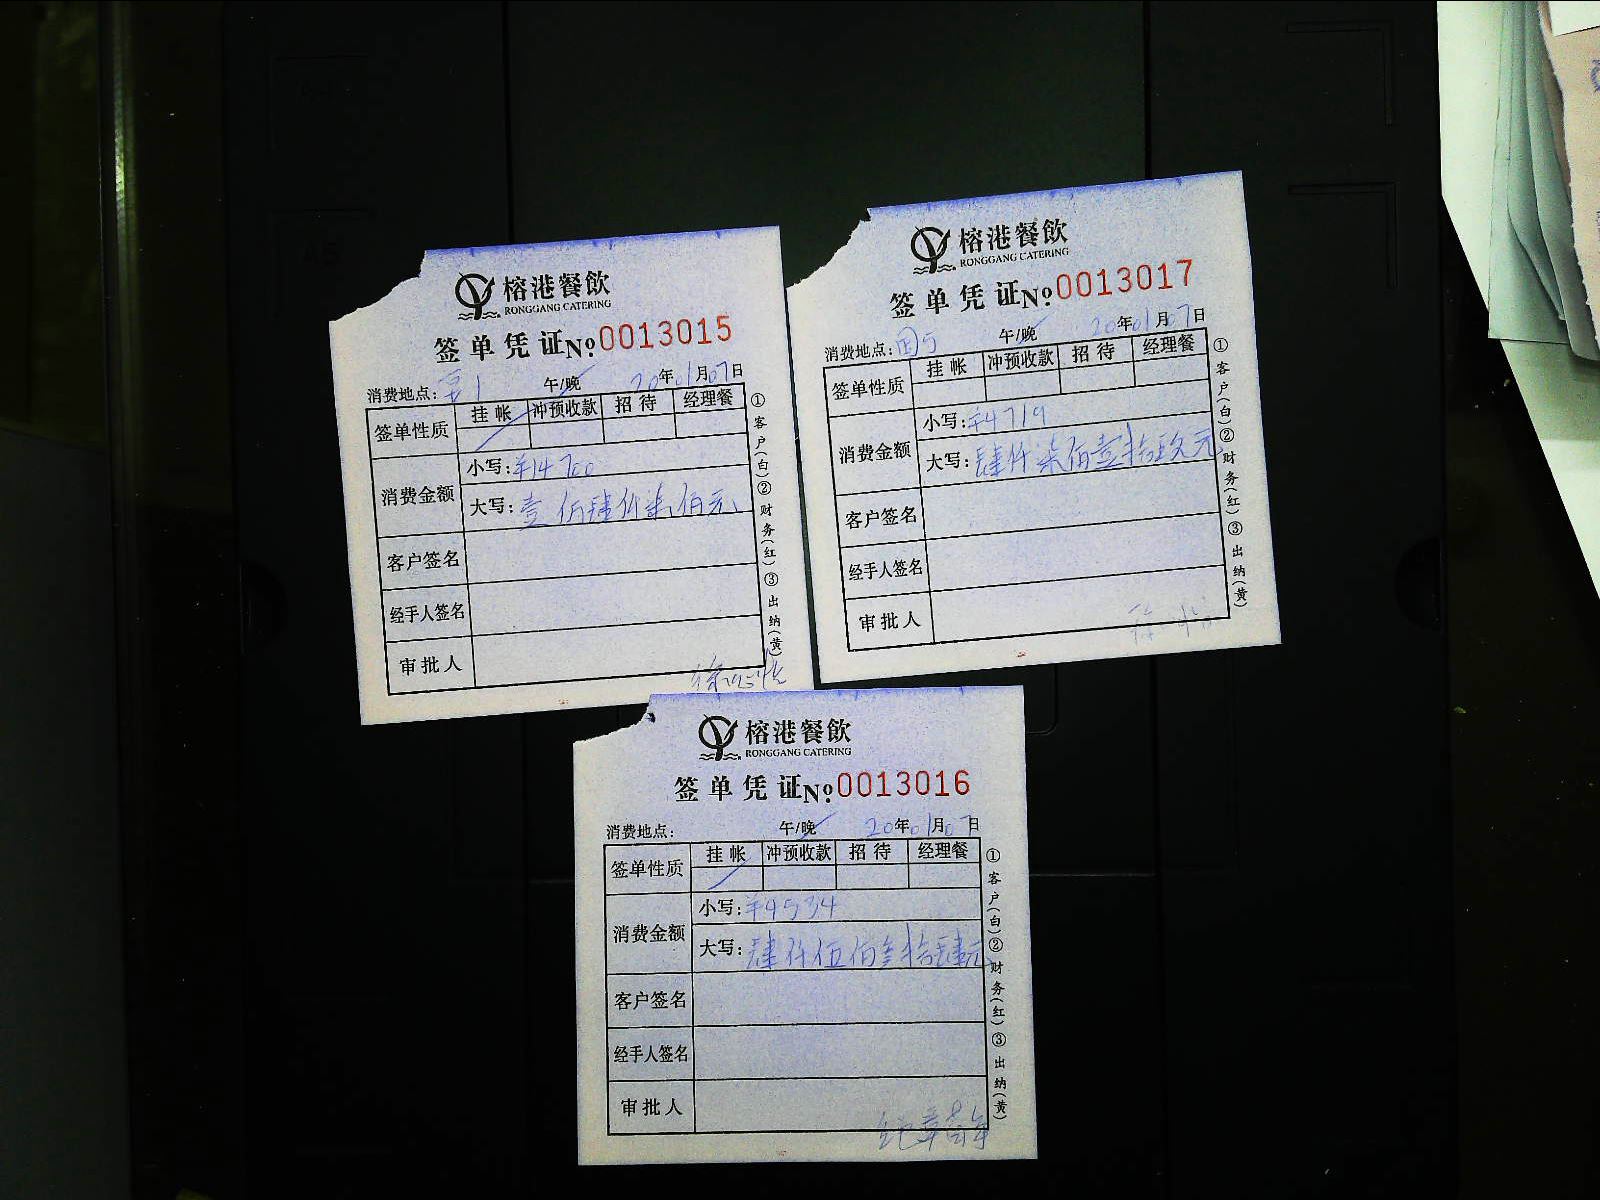 榕港餐飲
RONGGANG CATERING
签单凭证№0013015
消费地点: 午/晚 20年01月07日
签单性质 挂帐 冲预收款 招待 经理餐
消费金额 小写:¥14700
大写:壹佰肆仟柒佰元
客户签名
经手人签名
审批人
①客户(白)②财务(红)③出纳(黄)
榕港餐飲
RONGGANG CATERING
签单凭证№0013017
消费地点: 午/晚 20年01月07日
签单性质 挂帐 冲预收款 招待 经理餐
消费金额 小写:¥4719
大写:肆仟柒佰壹拾玖元
客户签名
经手人签名
审批人
①客户(白)②财务(红)③出纳(黄)
榕港餐飲
RONGGANG CATERING
签单凭证№0013016
消费地点: 午/晚 20年01月07日
签单性质 挂帐 冲预收款 招待 经理餐
消费金额 小写:¥4534
大写:肆仟伍佰叁拾肆元
客户签名
经手人签名
审批人
①客户(白)②财务(红)③出纳(黄)
A5